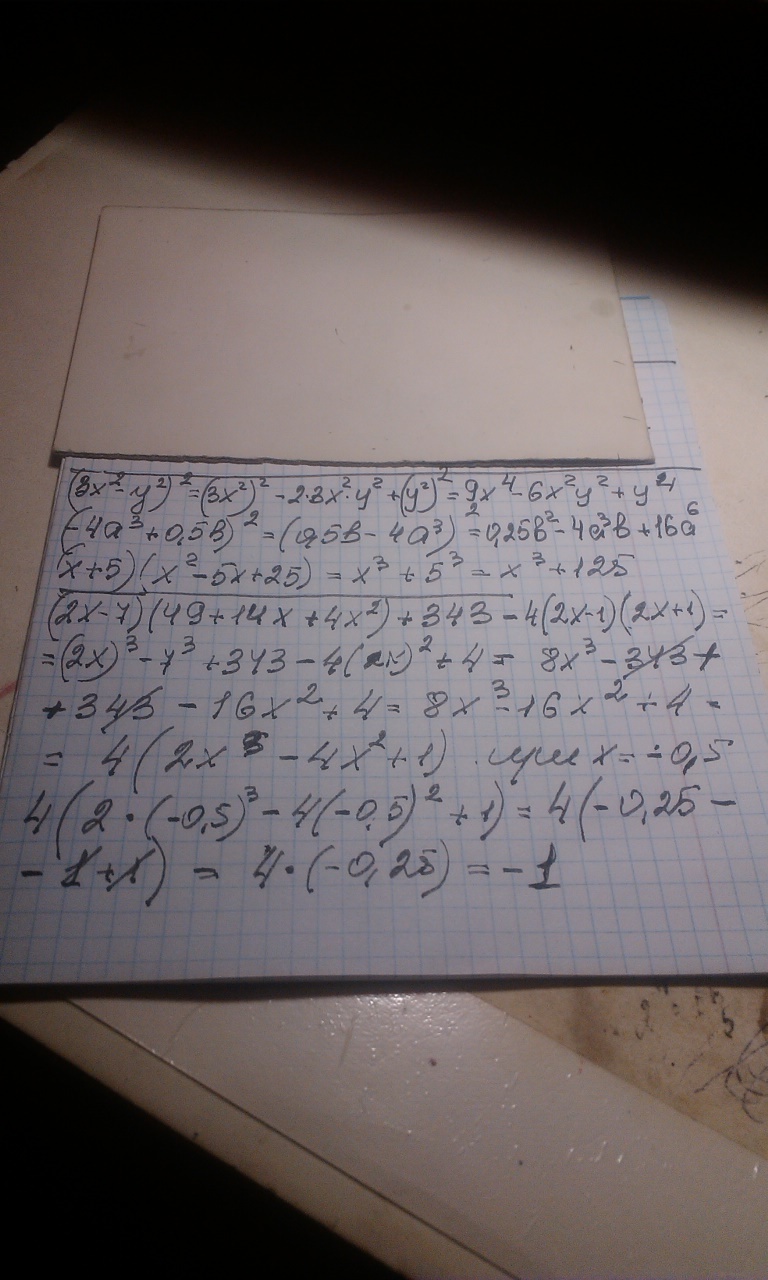 (3x²-y²)²=(3x²)²-2·3x²·y²+(y²)²=9x⁴-6x²y²+y⁴
(-4a³+0,5b)²=(0,5b-4a³)²=0,25b²-4a³b+16a⁶
(x+5)(x²-5x+25)=x³+5³=x³+125
(2x-7)(49+14x+4x²)+343-4(2x-1)(2x+1)=
=(2x)³-7³+343-4(2x)²+4= 8x³-343+
+343-16x²+4=8x³-16x²+4=
= 4(2x³-4x²+1) при x=-0,5
4(2·(-0,5)³-4(-0,5)²+1)=4(-0,25-
-1+1)= 4·(-0,25)=-1